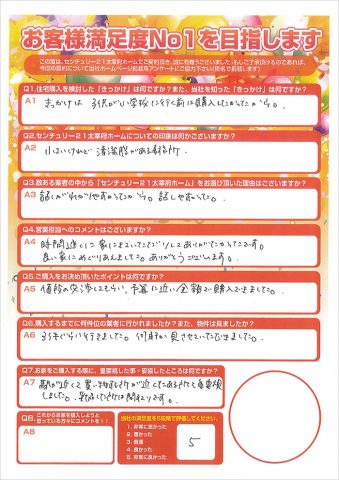 お客様満足度No1を目指します
この度は、センチュリー21太宰府ホームでご契約頂き、誠に有難うございました。もしご了承頂けるのであれば、
今回の契約について当社ホームページ掲載用アンケートにご協力下さい(匿名で掲載します)
Q1.住宅購入を検討した「きっかけ」は何ですか?また、当社を知った「きっかけ」は何ですか?
A1 きっかけは 子供が小学校に行く前に購入したかったから。
Q2.センチュリー21太宰府ホームについての印象は何かございますか?
A2 小さいけれど 清潔感がある
Q3.数ある業者の中から「センチュリー21太宰府ホーム」をお選び頂いた理由はございますか?
A3 話がわかりやすかったから。話しやすかった。
Q4.営業担当へのコメントはございますか?
A4 時間遅くに家にきていただいたりしてありがたかったです。
良い家にめぐりあえました。ありがとうございます。
Q5.ご購入をお決め頂いたポイントは何ですか?
A5 値段の交渉してもらい、予算に近い金額で購入できました。
Q6.購入するまでに何件位の業者に行かれましたか?また、物件は見ましたか?
A6 3、4件ぐらい行きました。何件か見させていただきました。
Q7.お家をご購入する際に、重要視した事・妥協したところは何ですか?
A7 駅が近くて買い物も
しました。妥協した所は間取りです。
Q8.これからお家を購入しようと
思っている方々にコメントを!!
A8
当社の満足度を5段階で評価してください。
1. 非常に悪かった
2. 悪かった
3. 普通
4. 良かった
5. 非常に良かった
5